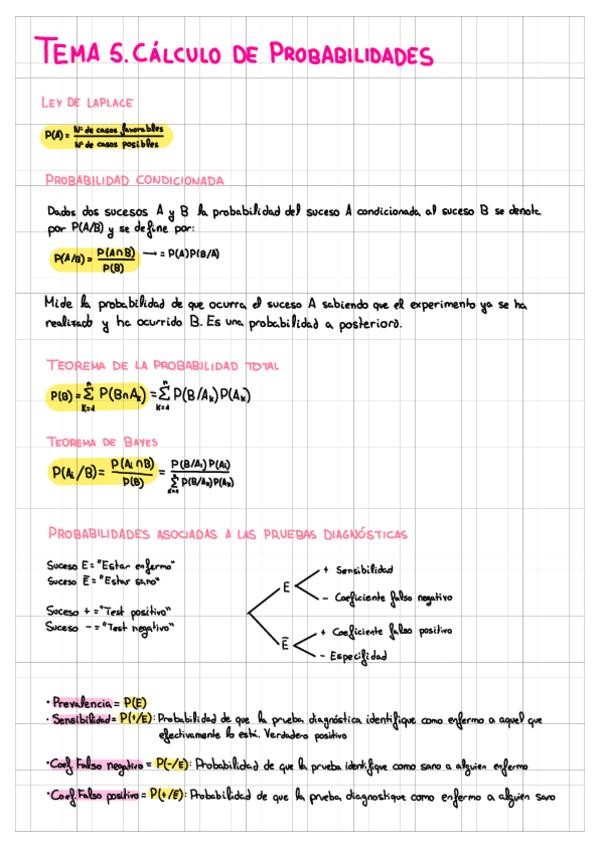 TEMA 5. CÁLCULO DE PROBABILIDADES
LEY DE LAPLACE
P(A) = Nº de casos favorables / Nº de casos posibles
PROBABILIDAD CONDICIONADA
Dados dos sucesos A y B la probabilidad del suceso A condicionada al suceso B se denota
por P(A/B) y se define por:
P(A/B) = P(A∩B) / P(B) → = P(A)P(B/A)
Mide la probabilidad de que ocurra el suceso A sabiendo que el experimento ya se ha
realizado y ha ocurrido B. Es una probabilidad a posteriori.
TEOREMA DE LA PROBABILIDAD TOTAL
P(B) = Σ(K=1, n) P(B∩Aₖ) = Σ(K=1, n) P(B/Aₖ)P(Aₖ)
TEOREMA DE BAYES
P(Aᵢ/B) = P(Aᵢ∩B) / P(B) = P(B/Aᵢ)P(Aᵢ) / Σ(K=1, n) P(B/Aₖ)P(Aₖ)
PROBABILIDADES ASOCIADAS A LAS PRUEBAS DIAGNÓSTICAS
Suceso E = "Estar enfermo"
Suceso E̅ = "Estar sano"
Suceso + = "Test positivo"
Suceso - = "Test negativo"
E
+ Sensibilidad
- Coeficiente falso negativo
E̅
+ Coeficiente falso positivo
- Especifidad
· Prevalencia = P(E)
· Sensibilidad = P(+/E): Probabilidad de que la prueba diagnóstica identifique como enfermo a aquel que
efectivamente lo está. Verdadero positivo
· Coef. Falso negativo = P(-/E): Probabilidad de que la prueba identifique como sano a alguien enfermo
· Coef. Falso positivo = P(+/E̅): Probabilidad de que la prueba diagnostique como enfermo a alguien sano